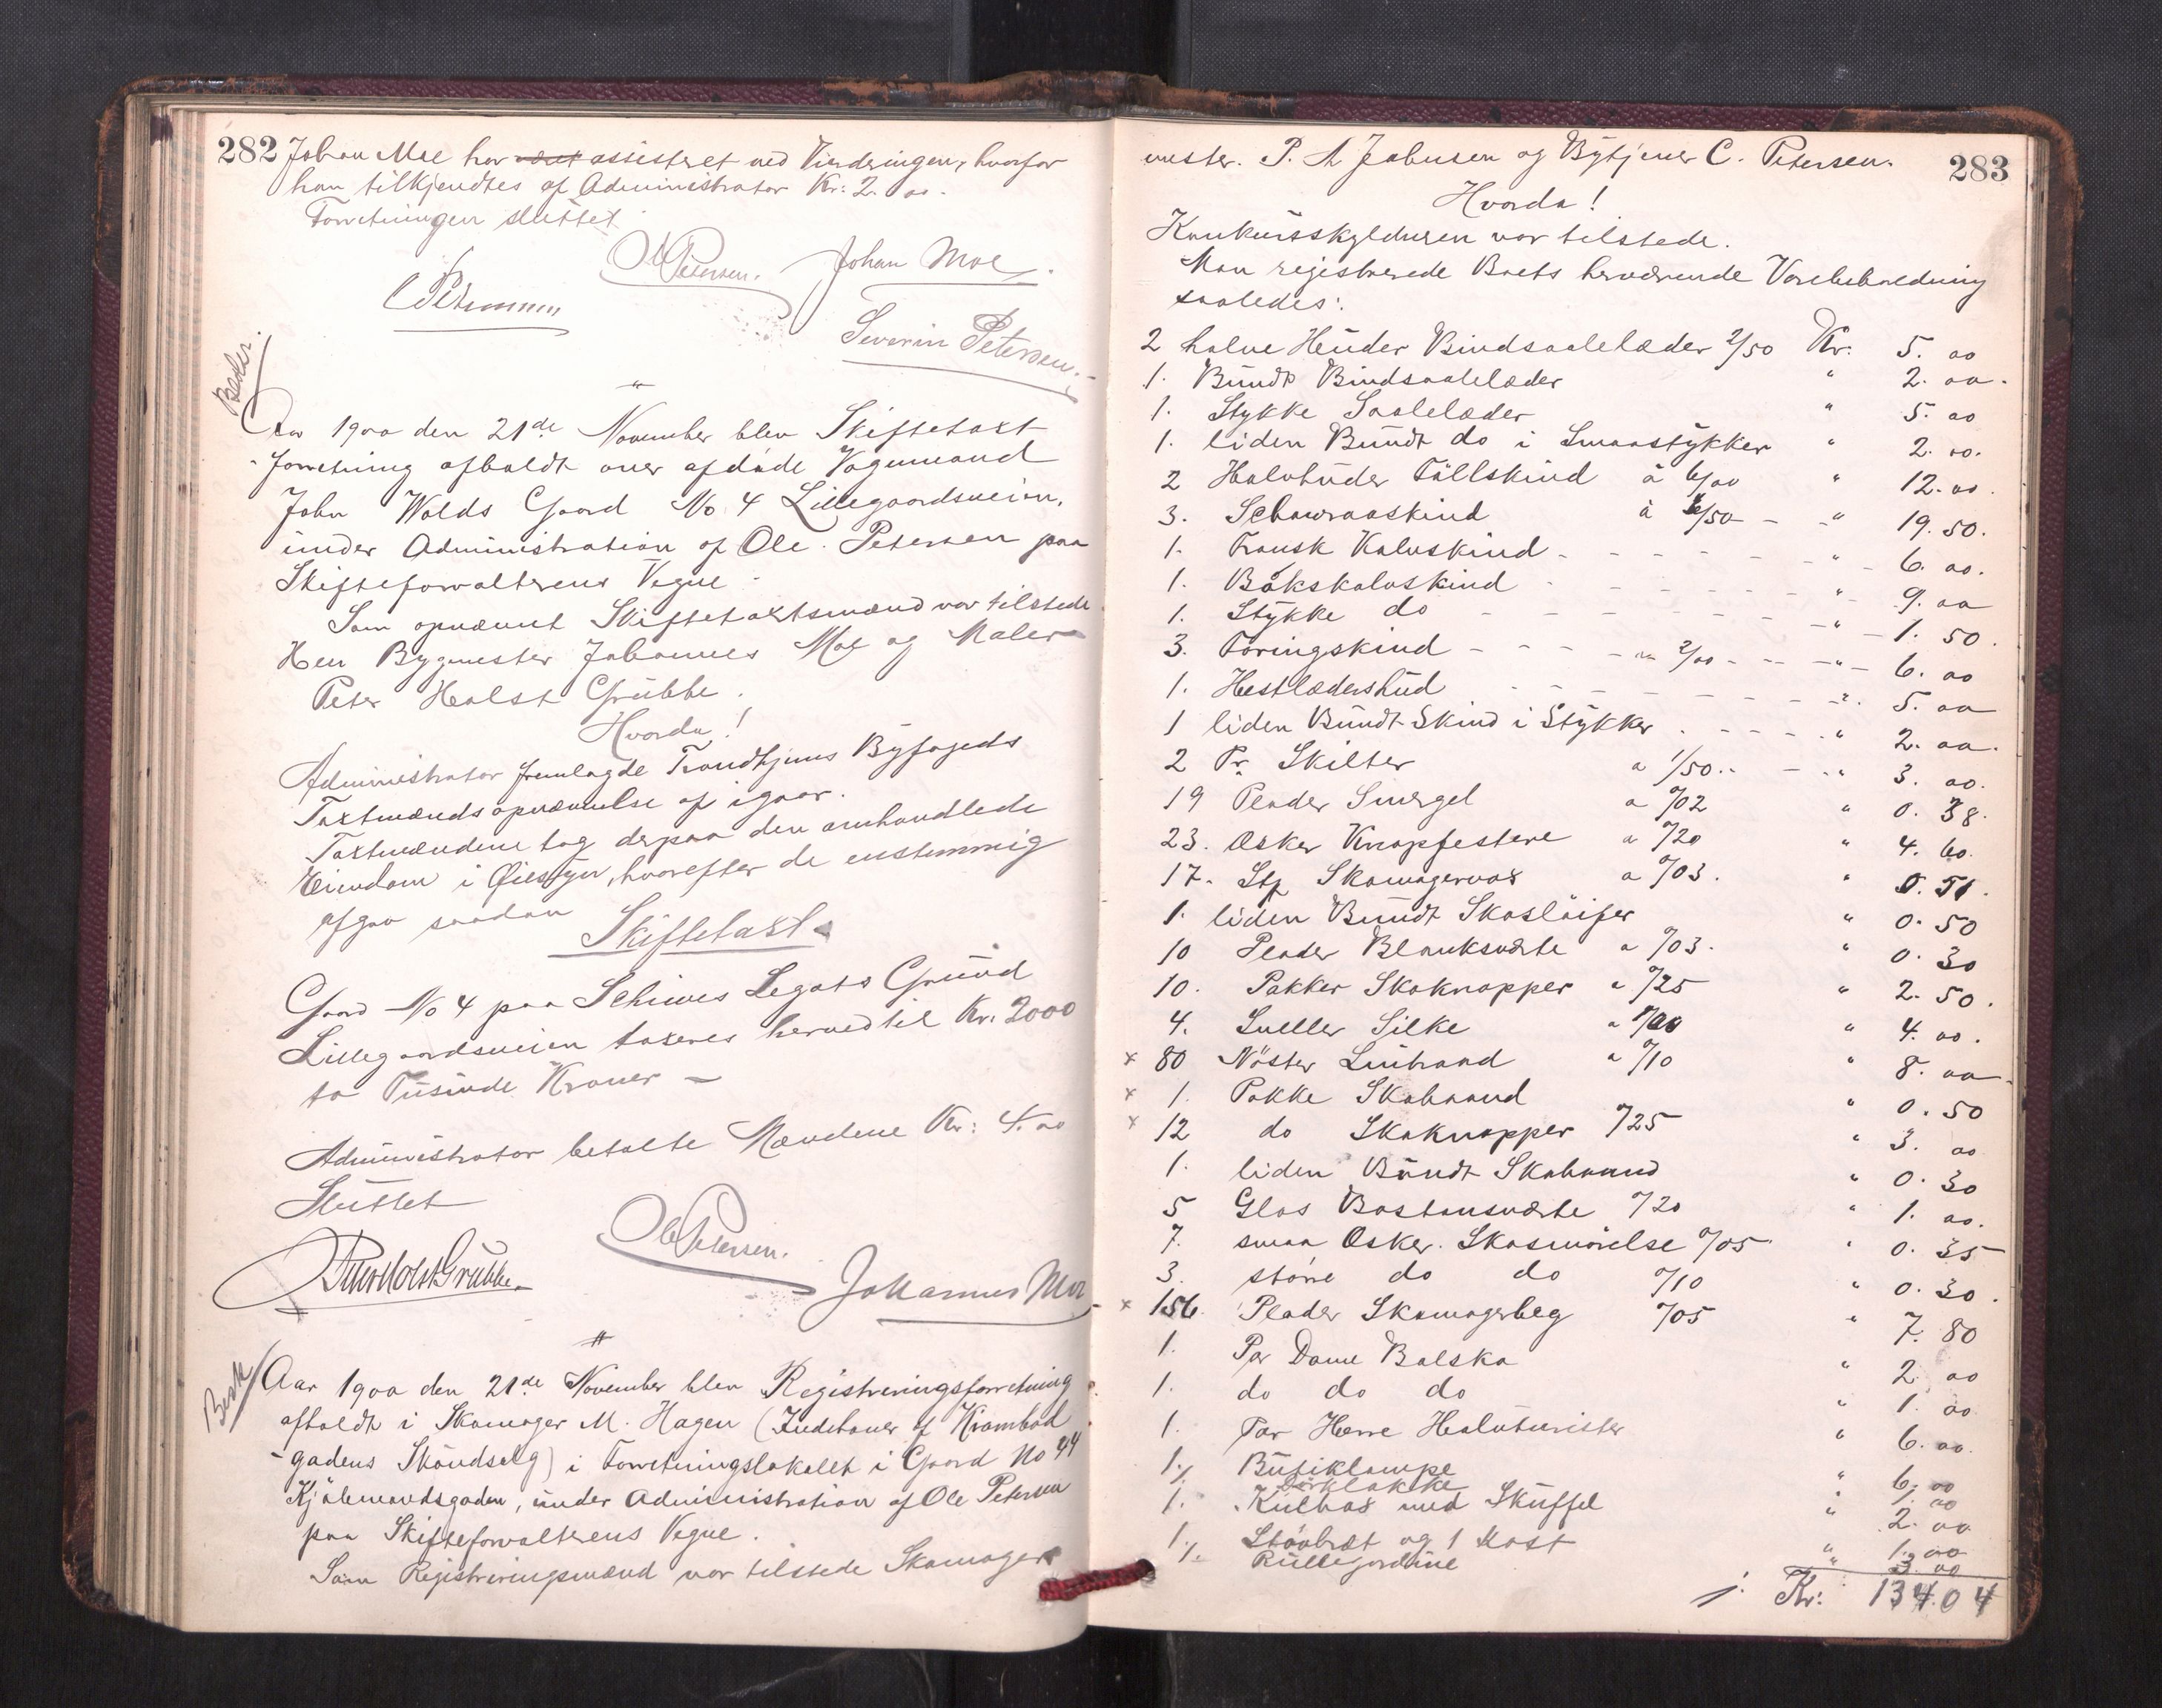 282 Johan Moe har været assisteret ved Vurderingen, hvorfor
han tilkjendtes af Administrator Kr: 2. 00.
Forretningen sluttet
OlePetersen. Johan Moe.
CPetersen
Severin Petersen.
Beder.
Aar 1900 den 21de November blev Skiftetaxt-
forretning afholdt over afdøde Vognmand
John Wolds Gaard No 4 Lillegaardsveien,
under Administration af Ole Petersen paa
Skifteforvalterens Vegne.
Som opnævnt Skiftetaxtsmænd var tilstede
Herr Bygmester Johannes Moe og Maler
Peter Holst Grübbe.
Hvorda!
Administrator fremlagde Trondhjems Byfogeds
Taxtmændsopnævnelse af igaar.
Taxtmændene tog derpaa den omhandlede
Eiendom i Øiesyn, hvorefter de enstemmig
afgav saadan
Skiftetaxt.
Gaard No 4 paa Schives Legats Grund
Lillegaardsveien taxeres herved til Kr. 2000
to Tusinde Kroner –
Administrator betalte Mændene Kr: 4. 00
Sluttet
PeterHolstGrübbe. OlePetersen.
Johannes Moe
Aar 1900 den 21de November blev Registreringsforretning
afholdt i Skomager M. Hagen (Indehaver af Krambod-
gadens Skoudsalg) i Forretningslokalet i Gaard No 44
Kjøbmandsgaden, under Administration af Ole Petersen
paa Skifteforvalterens Vegne.
Som Registreringsmænd var tilstede Skomager-
mester. P. A Jakobsen og Bytjener C. Petersen. 283
Hvorda!
Konkursskyldneren var tilstede.
Man registrerede Boets herværende Varebeholdning
saaledes:
2 halve Huder Bindsaalelæder 2/50 Kr: 5. 00
1. Bundt Bindsaalelæder " 2. 00.
1. Stykke Saalelæder " 5. 00
1. liden Bundt do i Smaastykker " 2. 00.
2 Halvhuder Fållskind à 6/00 " 12. 00.
3. Schawraaskind à 6/50 – " 19. 50.
1. Fransk Kalvskind - - - " 6. 00.
1. Bokskalvskind - - - " 9. 00
1. Stykke do - - - " 1. 50.
3. Foringskind - - - 2/00 - - " 6. 00
1. Hestlædershud - - - " 5. 00
1 liden Bundt Skind i Stykker - - - " 2. 00.
2 Pr. Skilter a 1/50 - - " 3. 00.
19 Plader Smergel a 0/02 " 0. 38.
23. Æsker Knapfestere a 0/20 " 4. 60.
17. Stp Skomagervox a 0/03. " 0. 51.
1. liden Bundt Skosløifer " 0. 50
10 Plader Blanksværte a 0/03. " 0. 30
10. Pakker Skoknapper a 0/25 " 2. 50.
4. Sneller Silke a 1/00 " 4. 00.
x 80 Nøster Lintraad a 0/10 " 8. 00
x 1. Pakke Skobaand " 0. 50
x 12 do Skoknapper 0/25 " 3. 00
1. liden Bundt Skobaand " 0. 30
5 Glas Bostonsværte 0/20 " 1. 00.
7. smaa Æsker. Skosmørelse 0/05 " 0. 35
3. større do do 0/10 " 0. 30.
x 156. Plader Skomagerbeg 0/05 " 7. 80
1. Par Dame Balsko " 2. 00
1. do do do " 1. 00
1. Par Herre Halvturister " 6. 00.
1. Butiklampe " 6. 00
1. Kulkas med Skuffel " 2. 00
1. Støvbræt og 1 Kost " 1. 00
1. Rullegardine " 3. 00
Kr: 134.04